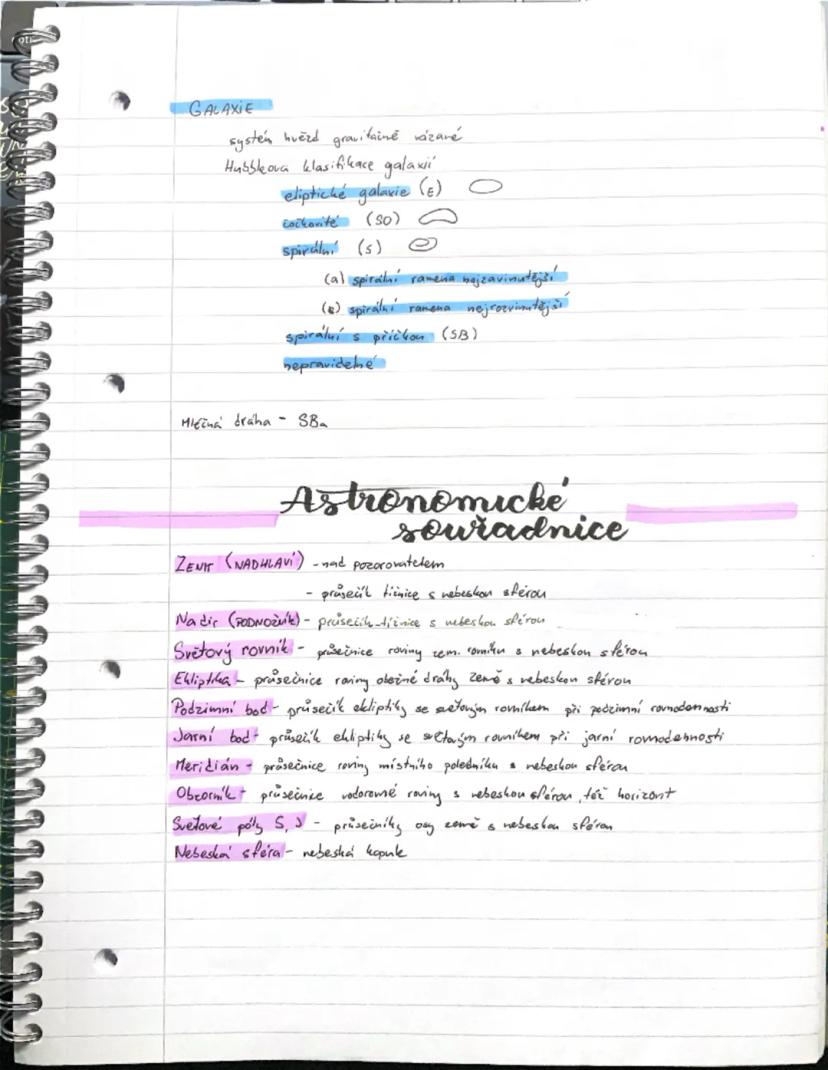 GALAXIE
systém hvězd gravitačně vázané
Hubbleova klasifikace galaxií
eliptické galaxie (E)
čočkovité (SO)
spirální (S)
(a) spirální ramena nejzavinutější
spirální ramena nejrozvinutější
spirální s příčkou (SB)
nepravidelné
Mléčná dráha - SBa
Astronomické
souřadnice
ZENIT (NADHLAVÍ) - nad pozorovatelem
- průsečík tížnice s nebeskou sférou
Nadir (PODNOŽNÍK) - průsečík tížnice s nebeskou sférou
Světový rovník - průsečnice roviny zem. rovníku s nebeskou sférou
Ekliptika - průsečnice roviny oběžné dráhy země s nebeskou sférou
Podzimní bod - průsečík ekliptiky se světovým rovníkem při podzimní rovnodennosti
Jarní bod - průsečík ekliptiky se světovým rovníkem při jarní rovnodennosti
Meridián - průsečnice roviny místního poledníku s nebeskou sférou
Obzorník - průsečnice vodorovné roviny s nebeskou sférou, též horizont
Světové póly S, J - průsečníky osy země s nebeskou sférou
Nebeská sféra - nebeská kopule